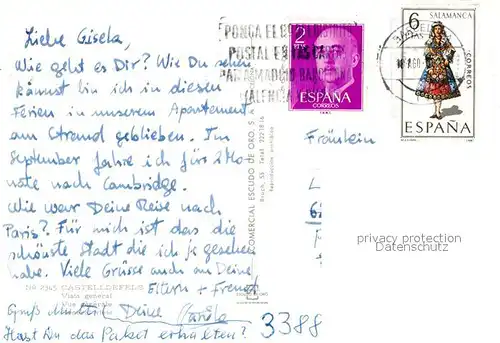 Liebe Gisela,
Wie geht es Dir? Wie Du sehen
kannst bin ich in diesen
Ferien in unserem Apartement
am Strand geblieben. Im
September fahre ich fürs 2 Mo
nate nach Cambridge.
Wie war Deine Reise nach
Paris? Für mich ist das die
schönste Stadt die ich je gesehen
habe. Viele Grüsse auch an Deine
Eltern + Freund
Deine
Hast Du das Paket erhalten?
3388
2
PTAS
ESPAÑA
CORREOS
6
SALAMANCA
CORREOS
ESPAÑA
PONGA EL
POSTAL
VALENCIA
Fräulein
privacy protection
Datenschutz
COMERCIAL ESCUDO DE ORO, S.A.
Reproducción prohibida
CASTELLDEFELS
Vista general